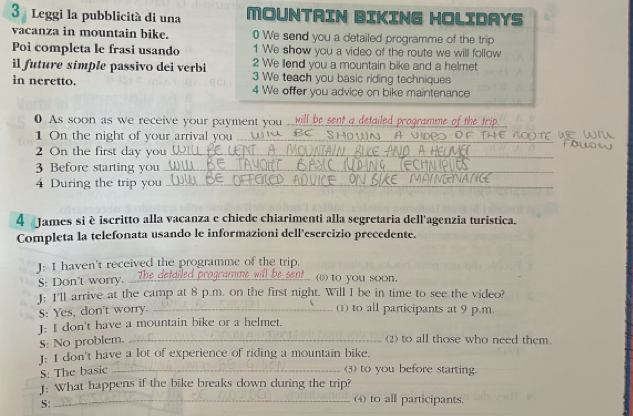 3 Leggi la pubblicità di una
vacanza in mountain bike.
Poi completa le frasi usando
il future simple passivo dei verbi
in neretto.
MOUNTAIN BIKING HOLIDAYS
0 We send you a detailed programme of the trip
1 We show you a video of the route we will follow
2 We lend you a mountain bike and a helmet
3 We teach you basic riding techniques
4 We offer you advice on bike maintenance
0 As soon as we receive your payment you will be sent a detailed programme of the trip
1 On the night of your arrival you WILL BE SHOWN A VIDEO OF THE ROOTE WE WILL
FOLLOW
2 On the first day you WILL BE LENT A MOUNTAIN BIKE AND A HELMET
3 Before starting you WILL BE BASIC RIDING
4 During the trip you WILL BE OFFERED ADVICE ON BIKE MAINTENANCE
4 James si è iscritto alla vacanza e chiede chiarimenti alla segretaria dell'agenzia turistica.
Completa la telefonata usando le informazioni dell'esercizio precedente.
J: I haven't received the programme of the trip.
S: Don't worry. The detailed programme will be sent (0) to you soon.
J: I'll arrive at the camp at 8 p.m. on the first night. Will I be in time to see the video?
S: Yes, don't worry. (1) to all participants at 9 p.m.
J: I don't have a mountain bike or a helmet.
S: No problem. (2) to all those who need them.
J: I don't have a lot of experience of riding a mountain bike.
S: The basic (3) to you before starting.
J: What happens if the bike breaks down during the trip?
S: (4) to all participants.